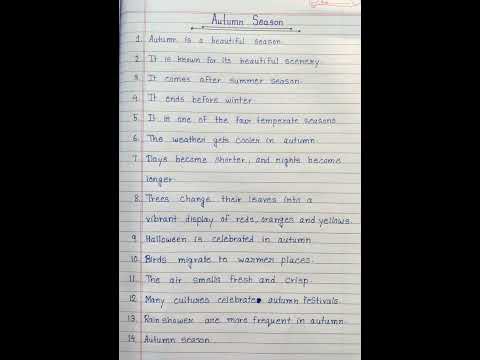 Autumn Season
1. Autumn is a beautiful season.
2. It is known for its beautiful scenery.
3. It comes after summer season.
4. It ends before winter.
5. It is one of the four temperate seasons.
6. The weather gets cooler in autumn.
7. Days become shorter, and nights become
longer.
8. Trees change their leaves into a
vibrant display of reds, oranges and yellows.
9. Halloween is celebrated in autumn.
10. Birds migrate to warmer places.
11. The air smells fresh and crisp.
12. Many cultures celebrate autumn festivals.
13. Rain shower are more frequent in autumn.
14. Autumn season